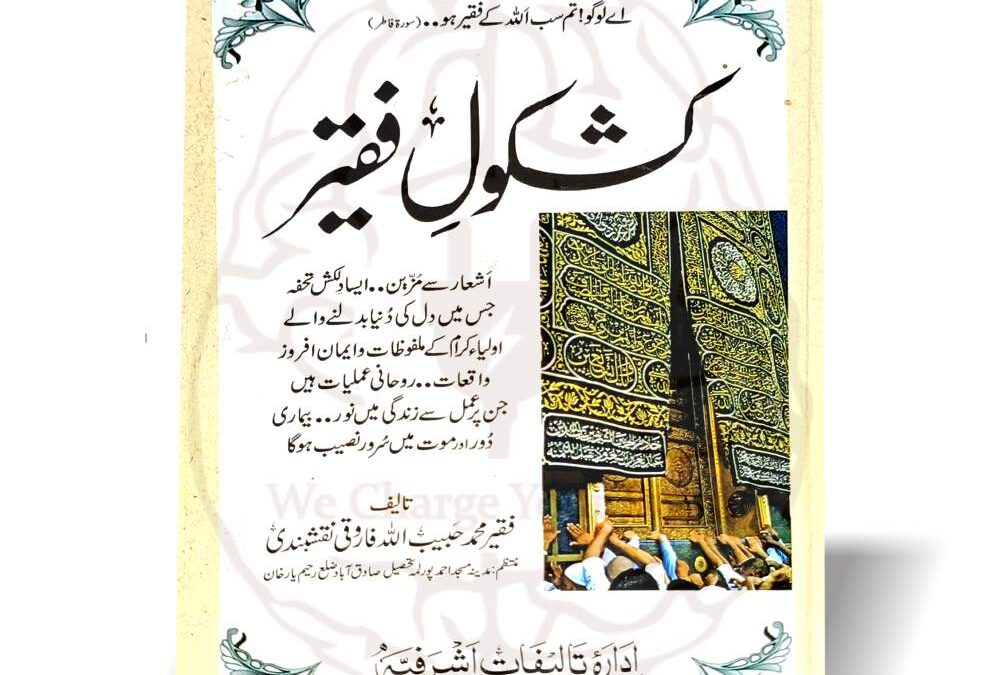 اے لوگو! تم سب اللہ کے فقیر ہو.. (سورۃ فاطر)
کشکولِ فقیر
اَشعار سے مُزیّن.. ایسا دلکش تحفہ
جس میں دِل کی دُنیا بدلنے والے
اولیاء کرام کے ملفوظات و ایمان افروز
واقعات.. روحانی عملیات ہیں
جن پر عمل سے زندگی میں نور.. بیماری
دُور اور موت میں سُرور نصیب ہوگا
We Charge
تالیف
فقیر محمد حبیب اللہ فاروقی نقشبندی
منتظم: مدینہ مسجد احمد پور لمہ تحصیل صادق آباد ضلع رحیم یار خان
اِدارۂ تالیفاتِ اَشرفیَّہ